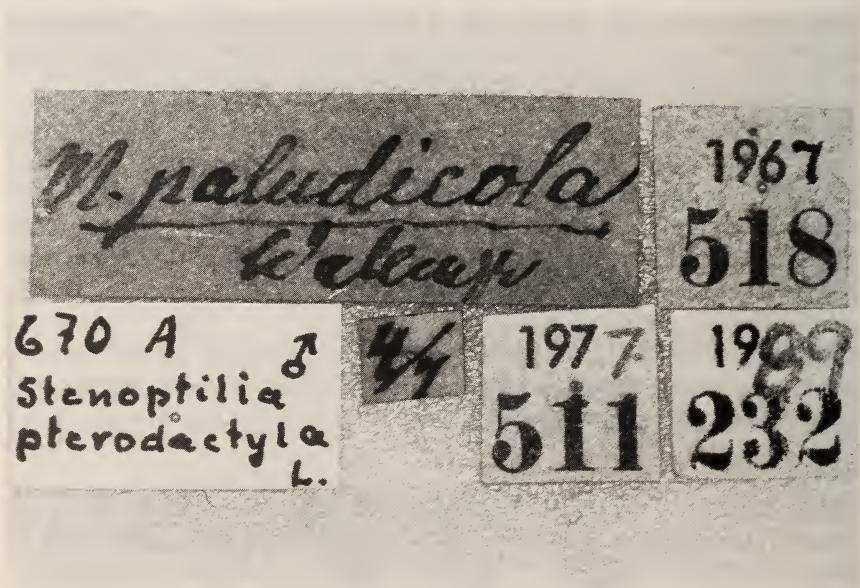 M. paludicola
Wallengr
1967
518
670 A ♂
Stenoptilia
pterodactyla
L.
4/7
1977
511
232